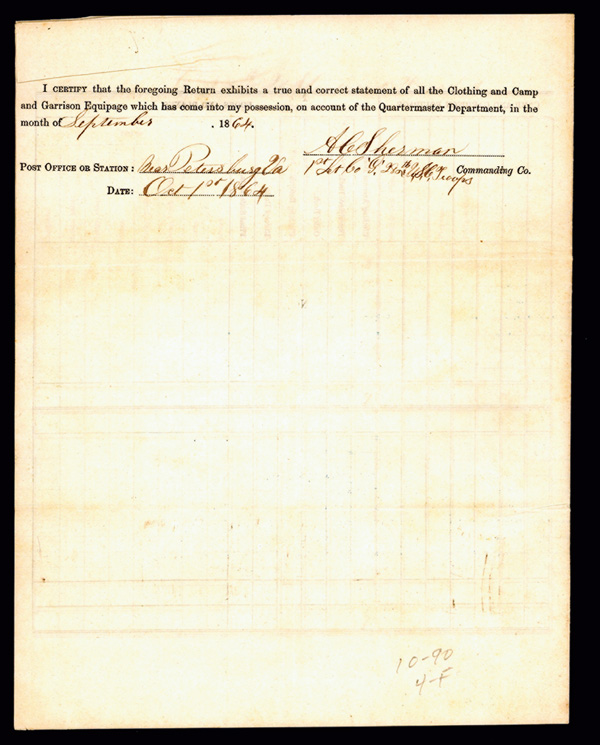 I CERTIFY that the foregoing Return exhibits a true and correct statement of all the Clothing and Camp
and Garrison Equipage which has come into my possession, on account of the Quartermaster Department, in the
month of September , 1864.
A C Sherman
POST OFFICE OR STATION: Near Petersburg Va 1st Lt Co G, U.S.C. Troops Commanding Co.
DATE: Oct 1st 1864
10-90
4-F